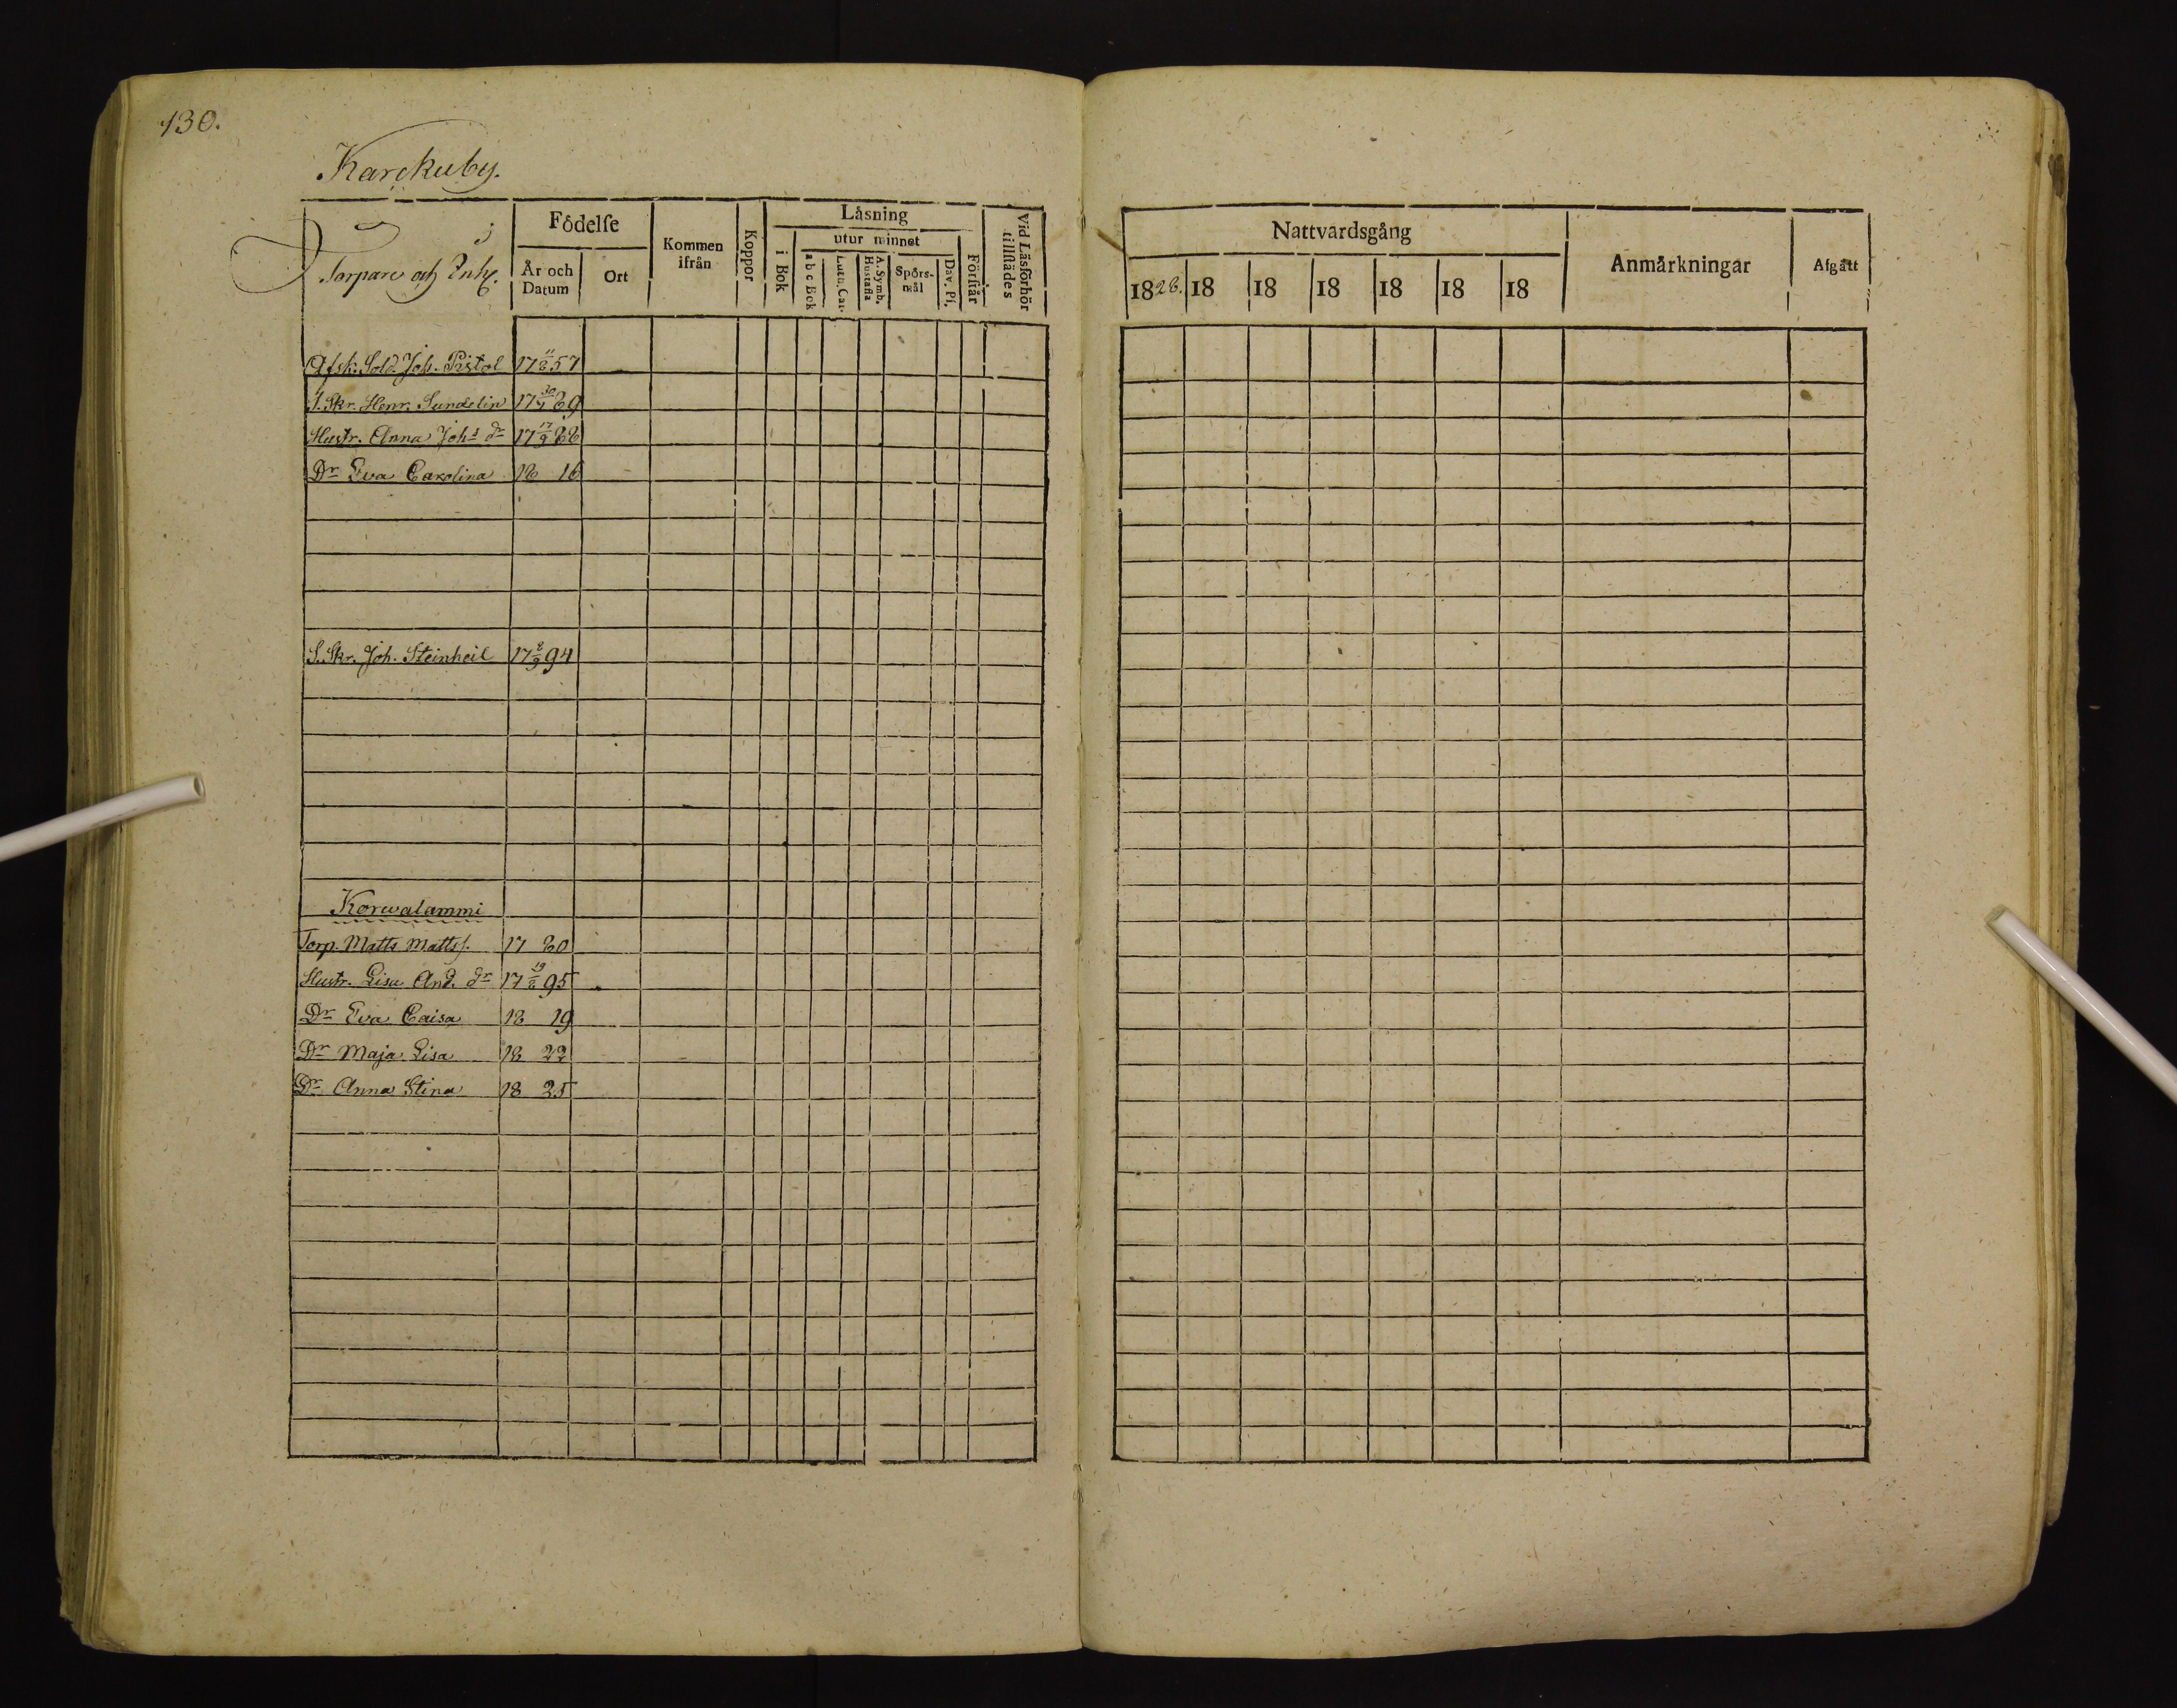 130.
Karckuby.
Torpare och Inhs.
Födelse
År och Datum
Ort
Kommen ifrån
Koppor
Låsning
i Bok
utur minnet
abc Bok
Luth. Cat.
A. Symb. Hustafla
Spörsmål
Dav. Ps.
Förstår
Vid Läsförhör tillstädes
Nattvardsgång
1828. 18 18 18 18 18 18
Anmårkningar
Afgått
Afsk. Sold. Joh. Pistol 17 11/8 57
S. Skr. Henr. Sundelin 17 30/1 89
Hustr. Anna Johs dr 17 17/9 88
Dr Eva Carolina 18 16
S. Skr. Joh. Steinheil 17 8/9 94
Korwalammi
Torp. Matts Matts s. 17 80
Hustr. Lisa And. dr 17 19/8 95
Dr Eva Caisa 18 19
Dr Maja Lisa 18 22
Dr Anna Stina 18 25